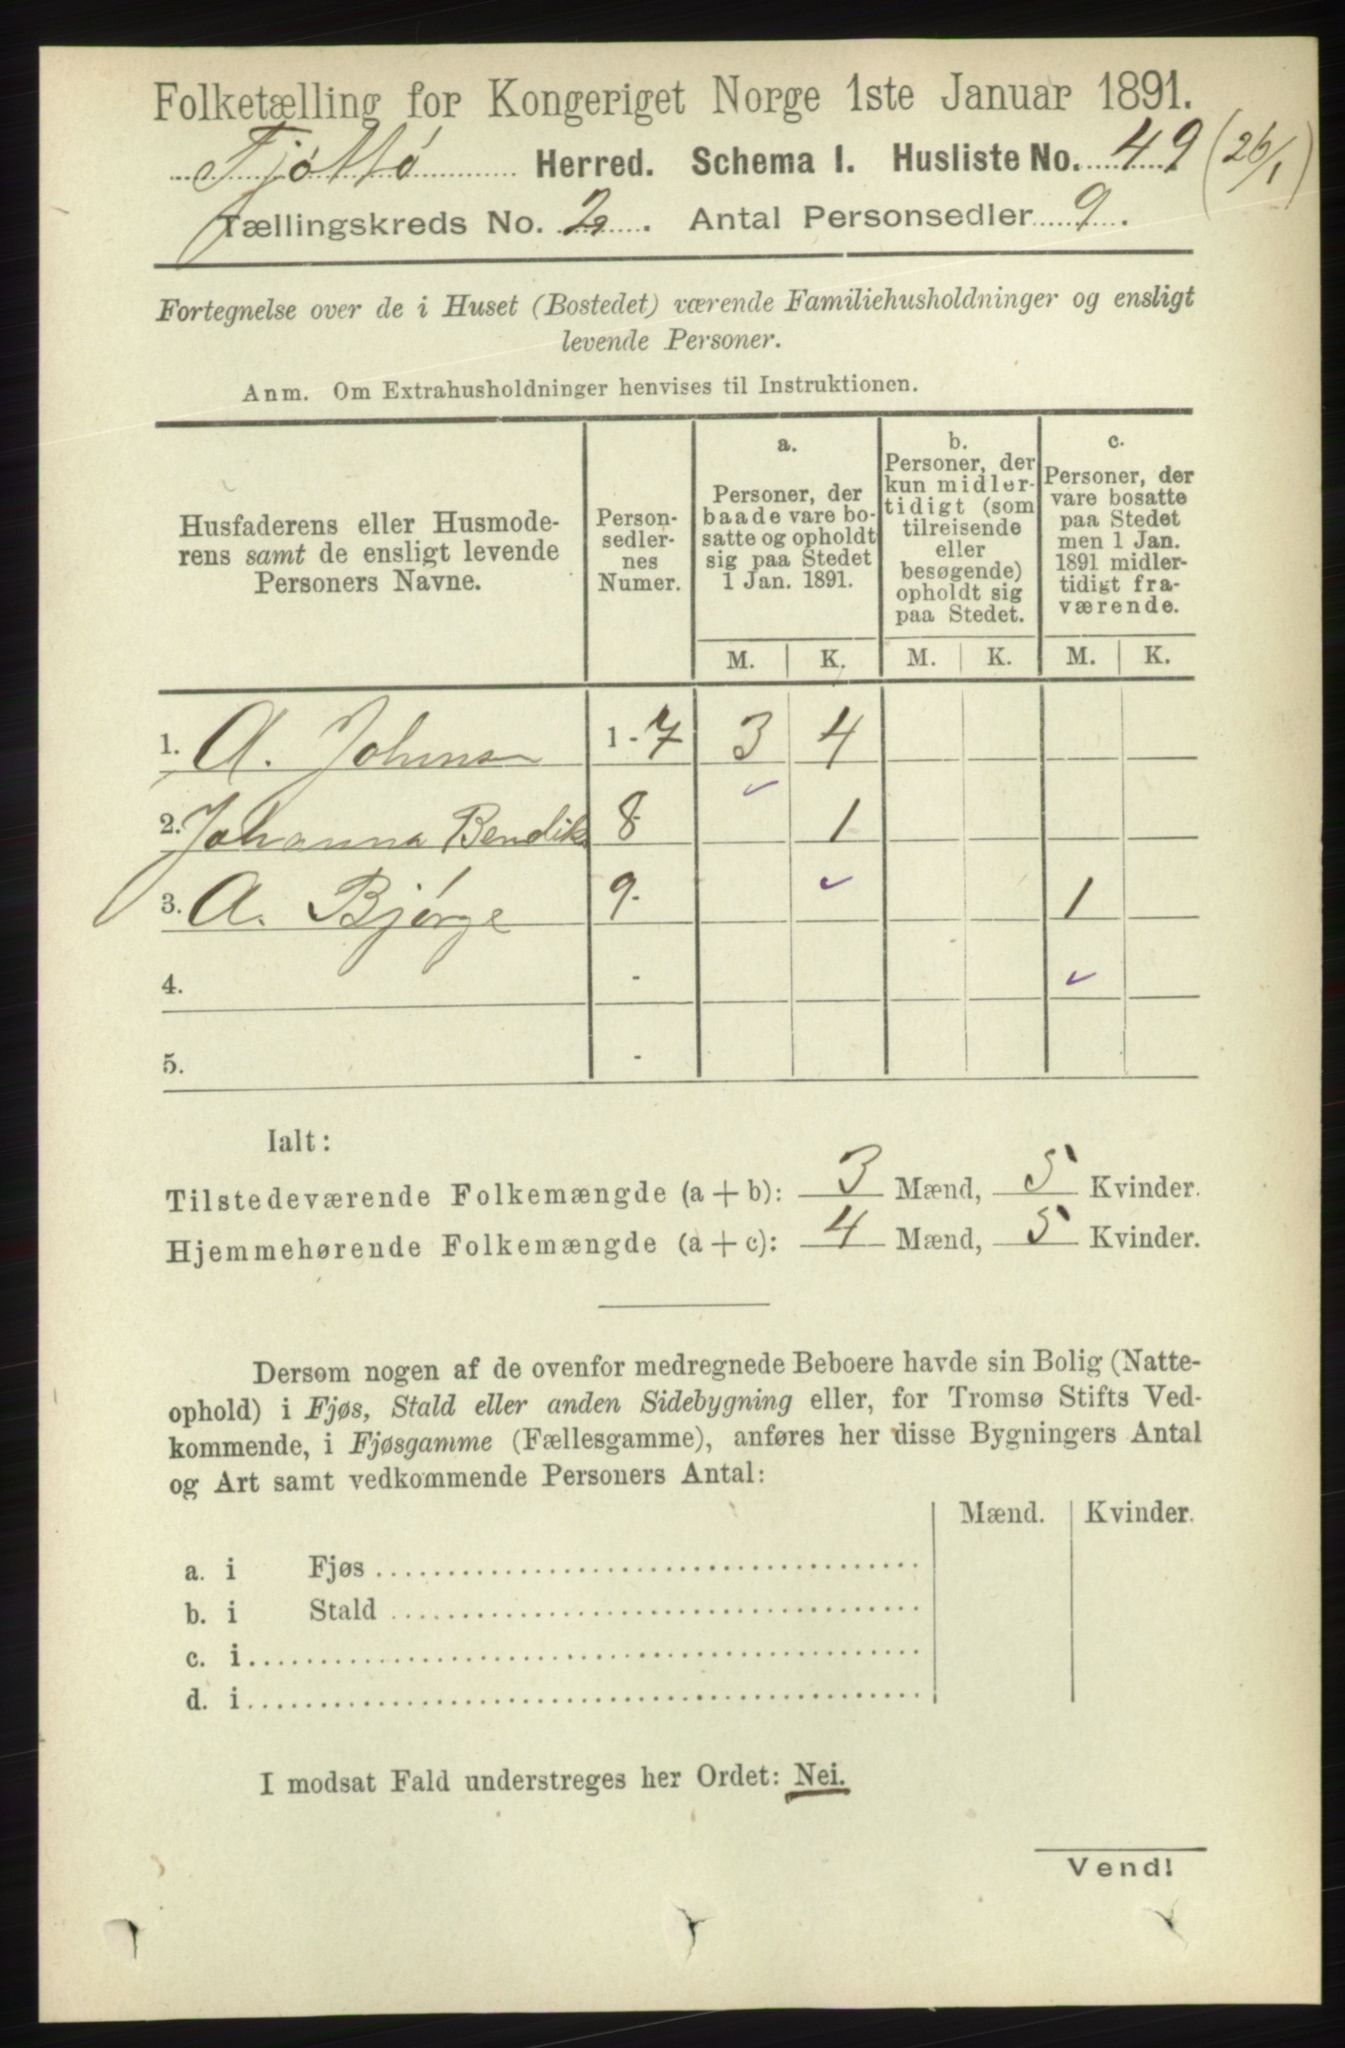 Folketælling for Kongeriget Norge 1ste Januar 1891.
Tjøttø Herred. Schema I. Husliste No. 49 (26/1)
Tællingskreds No. 2. Antal Personsedler 9.
Fortegnelse over de i Huset (Bostedet) værende Familiehusholdninger og ensligt
levende Personer.
Anm. Om Extrahusholdninger henvises til Instruktionen.
Husfaderens eller Husmode-
rens samt de ensligt levende
Personers Navne.
Person-
sedler-
nes
Numer.
a.
Personer, der
baade vare bo-
satte og opholdt
sig paa Stedet
1 Jan. 1891.
b.
Personer, der
kun midler-
tidigt (som
tilreisende
eller
besøgende)
opholdt sig
paa Stedet.
c.
Personer, der
vare bosatte
paa Stedet
men 1 Jan.
1891 midler-
tidigt fra-
værende.
M. K. M. K. M. K.
1. A. Johnsen 1-7 3 4
2. Johanna Bendik 8 1
3. A. Bjørge 9- 1
4. -
5. -
Ialt:
Tilstedeværende Folkemængde (a + b): 3 Mænd, 5 Kvinder.
Hjemmehørende Folkemængde (a + c): 4 Mænd, 5 Kvinder.
Dersom nogen af de ovenfor medregnede Beboere havde sin Bolig (Natte-
ophold) i Fjøs, Stald eller anden Sidebygning eller, for Tromsø Stifts Ved-
kommende, i Fjøsgamme (Fællesgamme), anføres her disse Bygningers Antal
og Art samt vedkommende Personers Antal:
Mænd. Kvinder.
a. i Fjøs
b. i Stald
c. i
d. i
I modsat Fald understreges her Ordet: Nei.
Vend!